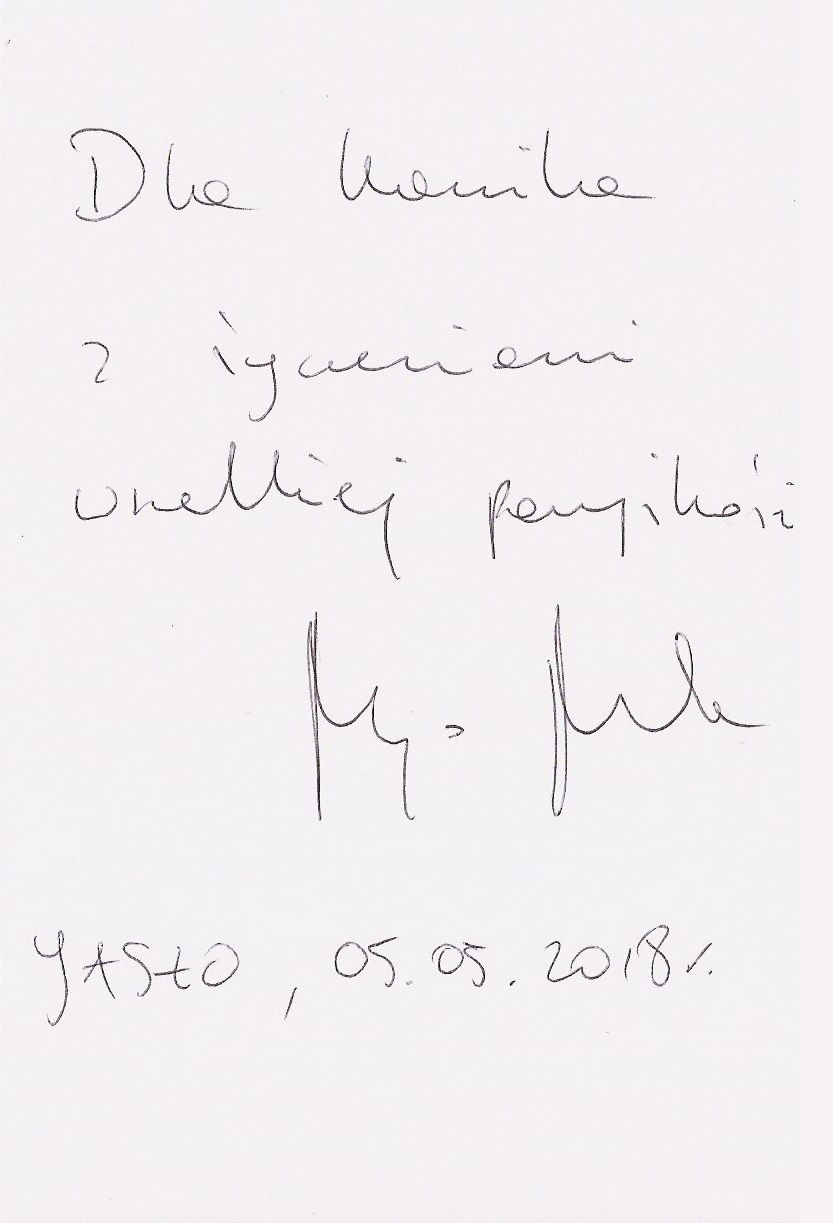 Dla Kamila
z życzeniami
wszelkiej pomyślności
JASŁO, 05.05.2018r.